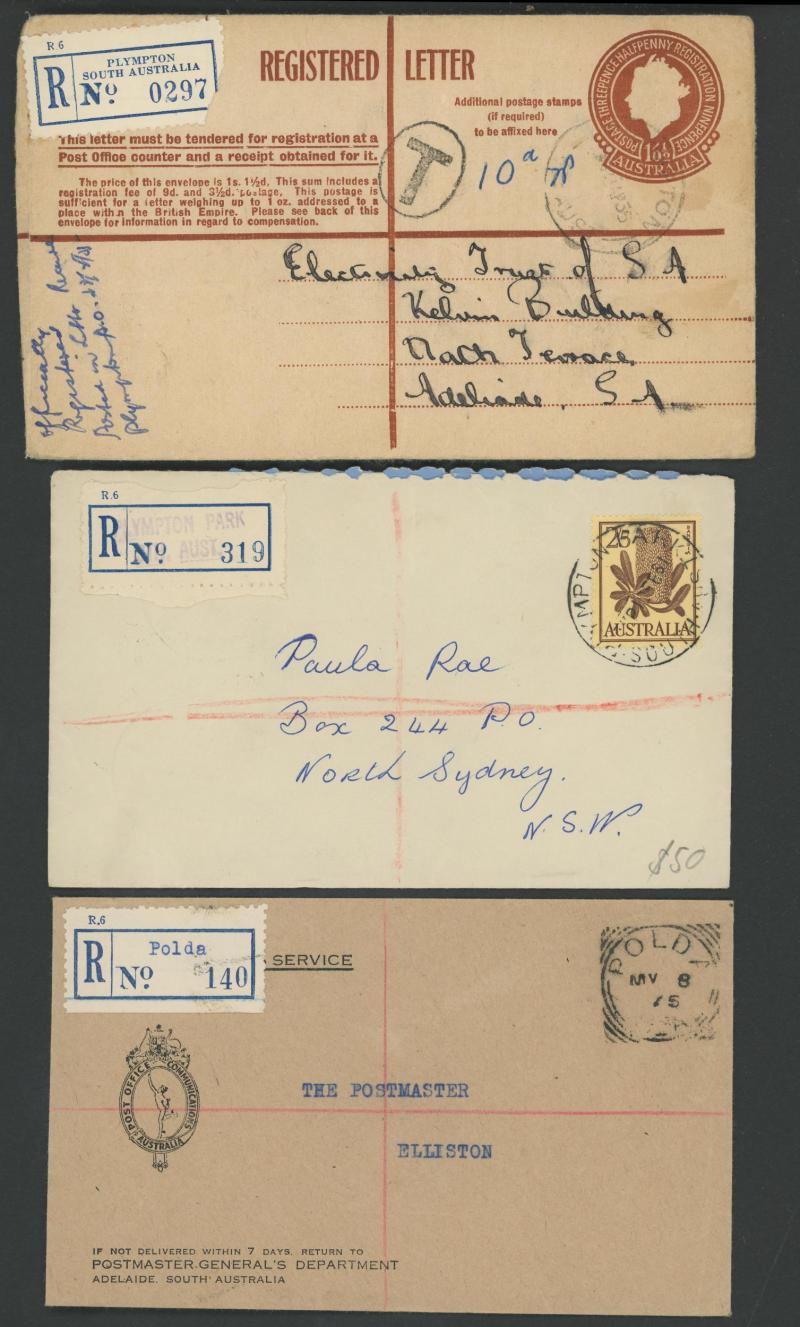 R.6
PLYMPTON
SOUTH AUSTRALIA
R No 0297
REGISTERED LETTER
This letter must be tendered for registration at a
Post Office counter and a receipt obtained for it.
The price of this envelope is 1s. 1½d. This sum includes a
registration fee of 9d. and 3½d. postage. This postage is
sufficient for a letter weighing up to 1 oz. addressed to a
place within the British Empire. Please see back of this
envelope for information in regard to compensation.
Additional postage stamps
(if required)
to be affixed here
POSTAGE THREEPENCE HALFPENNY REGISTRATION NINEPENCE
AUSTRALIA
T
10d
Electricity Trust of S A
Kelvin Building
North Terrace
Adelaide, S A
Officially
Registered
Posted in
Plympton
R.6
PLYMPTON PARK
AUST.
R No 319
2/5
AUSTRALIA
Paula Rae
Box 244 P.O.
North Sydney.
N.S.W.
$50
R.6
Polda
R No 140
SERVICE
POLDA
MY 8
75
POST OFFICE COMMUNICATIONS
AUSTRALIA
THE POSTMASTER
ELLISTON
IF NOT DELIVERED WITHIN 7 DAYS, RETURN TO
POSTMASTER-GENERAL'S DEPARTMENT
ADELAIDE. SOUTH AUSTRALIA